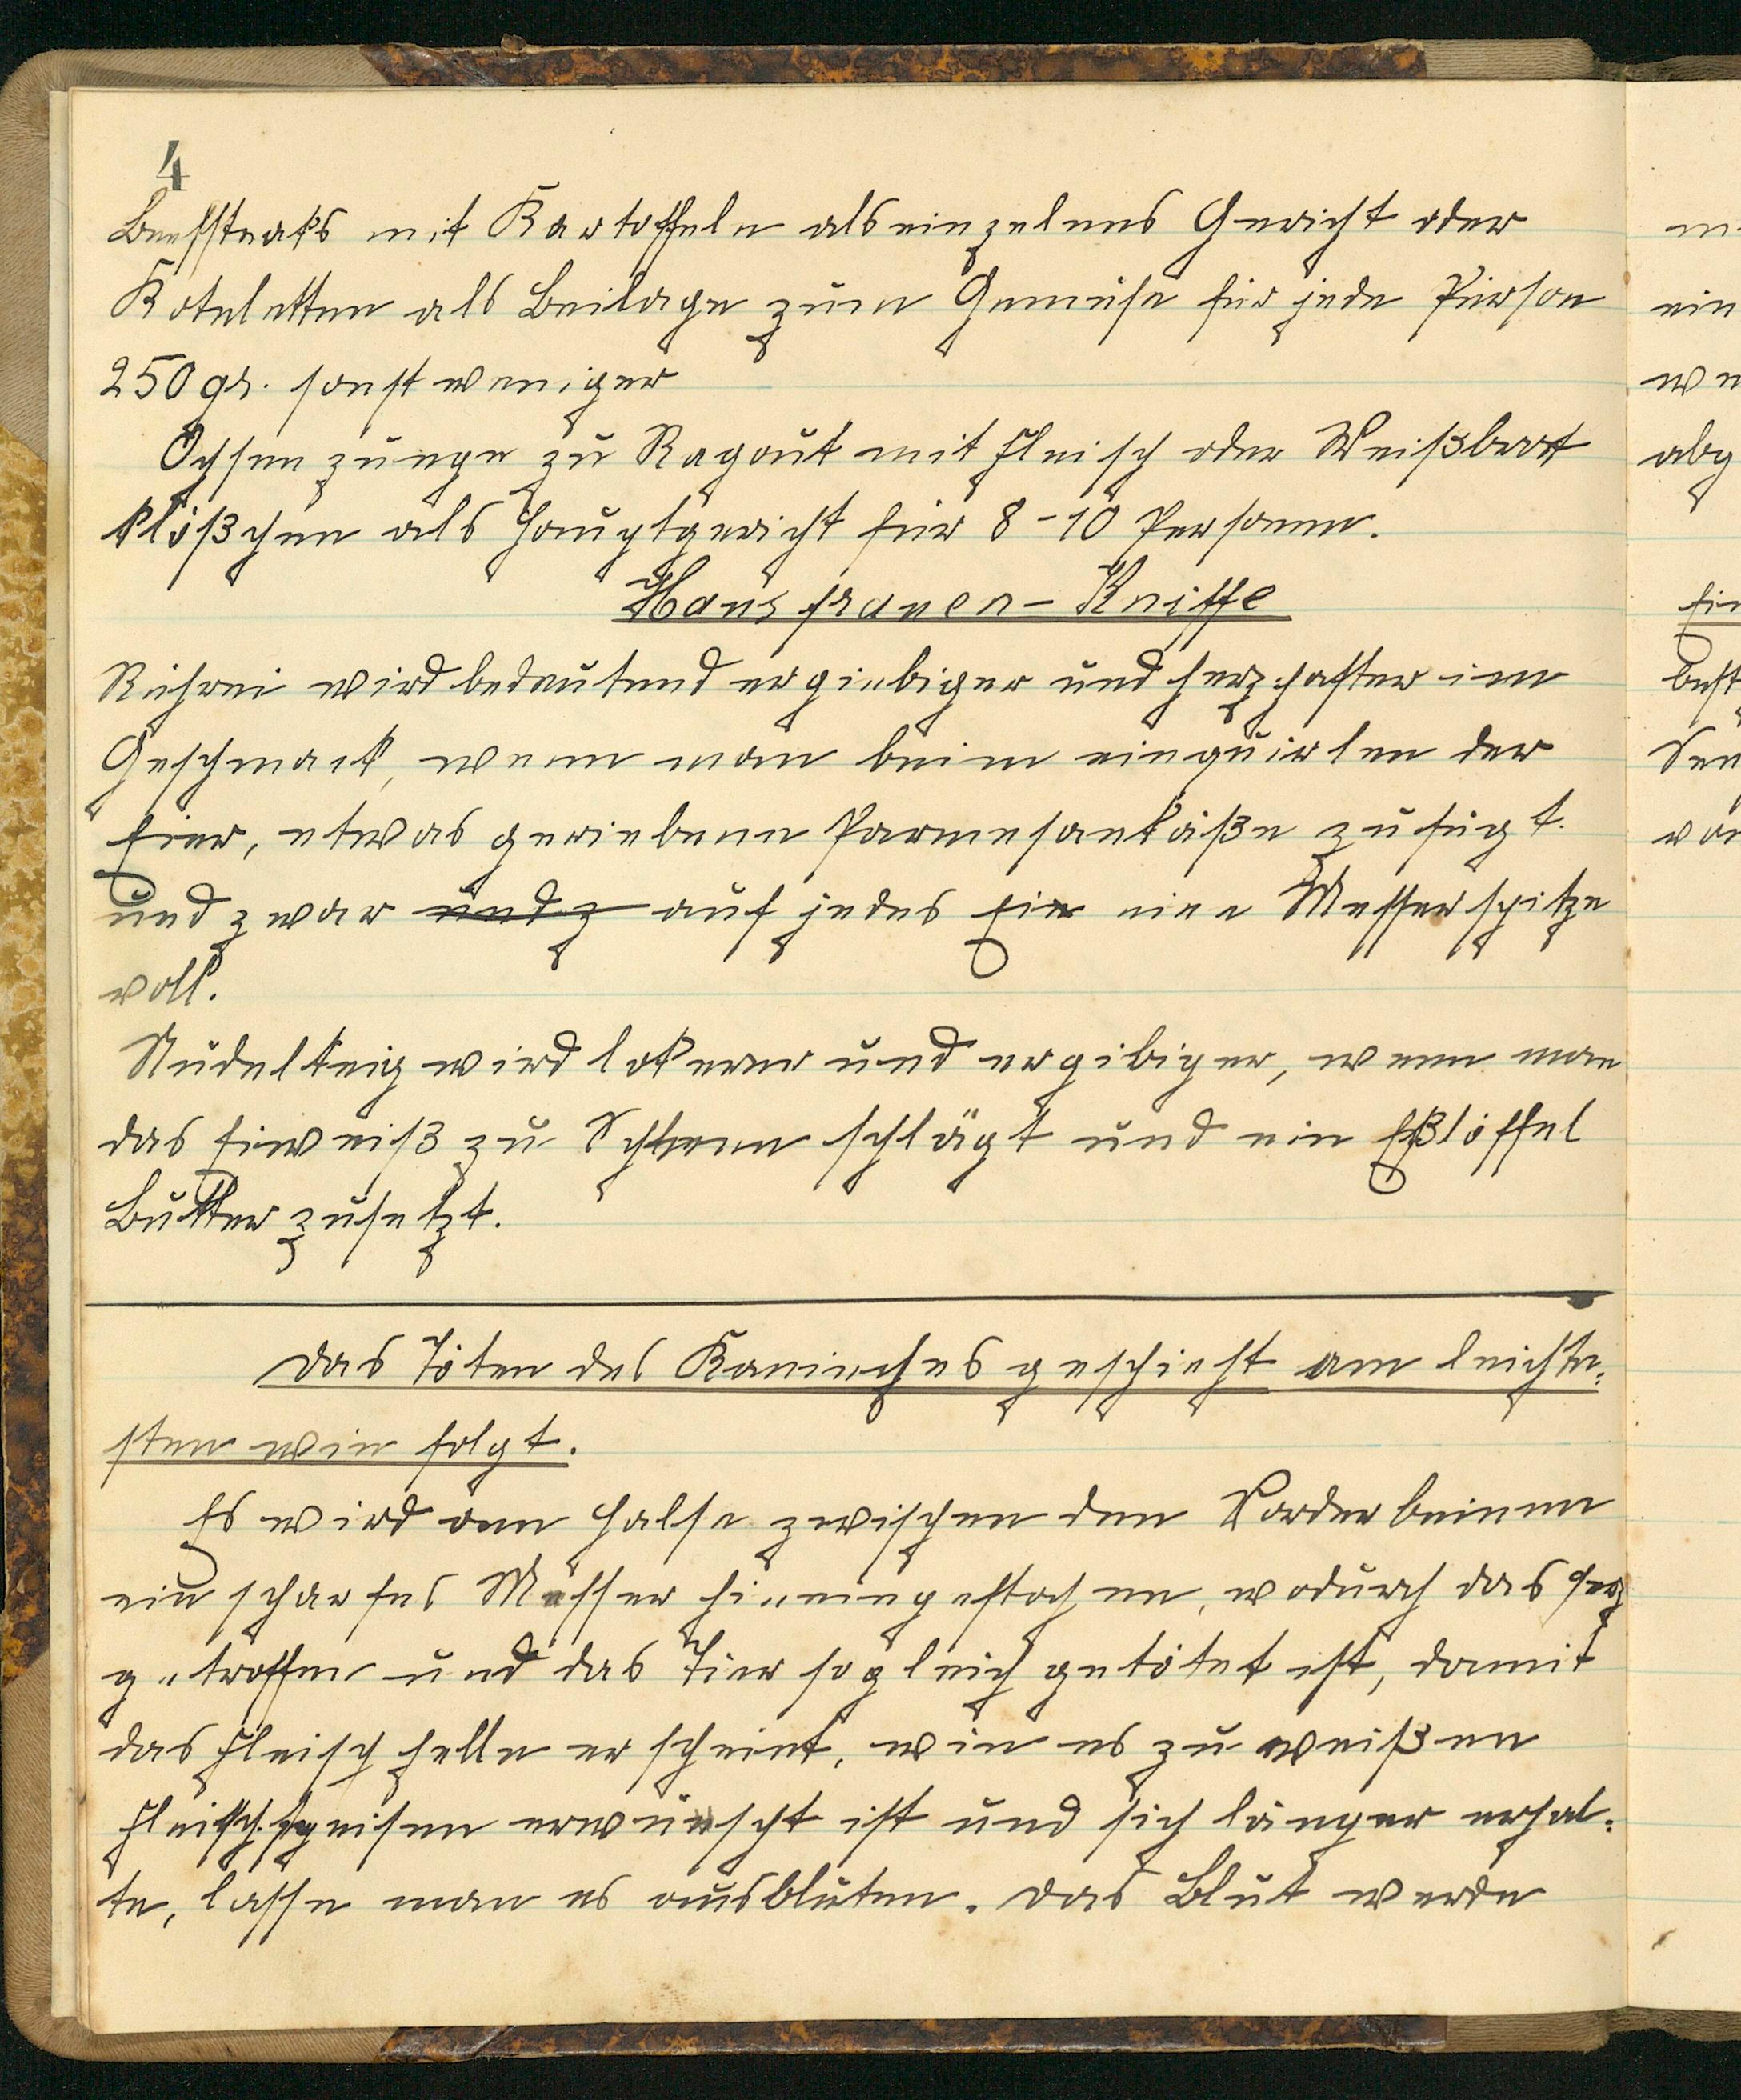 4
Beefsteaks mit Kartoffeln als einzelnes Gericht oder
Koteletten als Beilage zum Gemüse für jede Person
250 gr. sonst weniger
Ochsenzunge zu Ragout mit Fleisch oder Weißbrot
klößchen als Hauptgericht für 8-10 Personen.
Hausfrauen-Kniffe
Rührei wird bedeutend ergiebiger und herzhafter im
Geschmack, wenn man beim einquirlen der
Eier, etwas geriebene Parmesankäße zufügt.
und zwar und z auf jedes Ei eine Messerspitze
voll.
Nudelteig wird lokerer und ergibiger, wenn man
das Eiweiß zu Schnee schlägt und ein Eßlöffel
Butter zusetzt.
Das Töten des Kaninches geschieht am leichte=
sten wie folgt.
Es wird am Halse zwischen den Vorderbeinen
ein scharfes Messer hineingestochen, wodurch das Herz
getroffen und das Tier sogleich getötet ist, damit
das Fleisch helle erscheint, wie es zu weißen
Fleischspeisen erwünscht ist und sich länger erhal=
te, lasse man es ausbluten. Das Blut werde
ein
abg